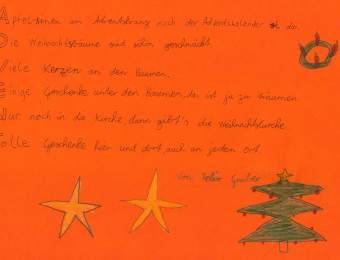 Apfelsinen am Adventskranz auch der Adventskalender ist da.
Die Weihnachtsbäume sind schön geschmückt.
Viele Kerzen an den Bäumen.
Einige Geschenke unter den Bäumen, das ist ja zu träumen.
Nur noch in die Kirche, dann gibt's die
Tolle Geschenke hier und dort auch an jeden Ort.
Von Gruber